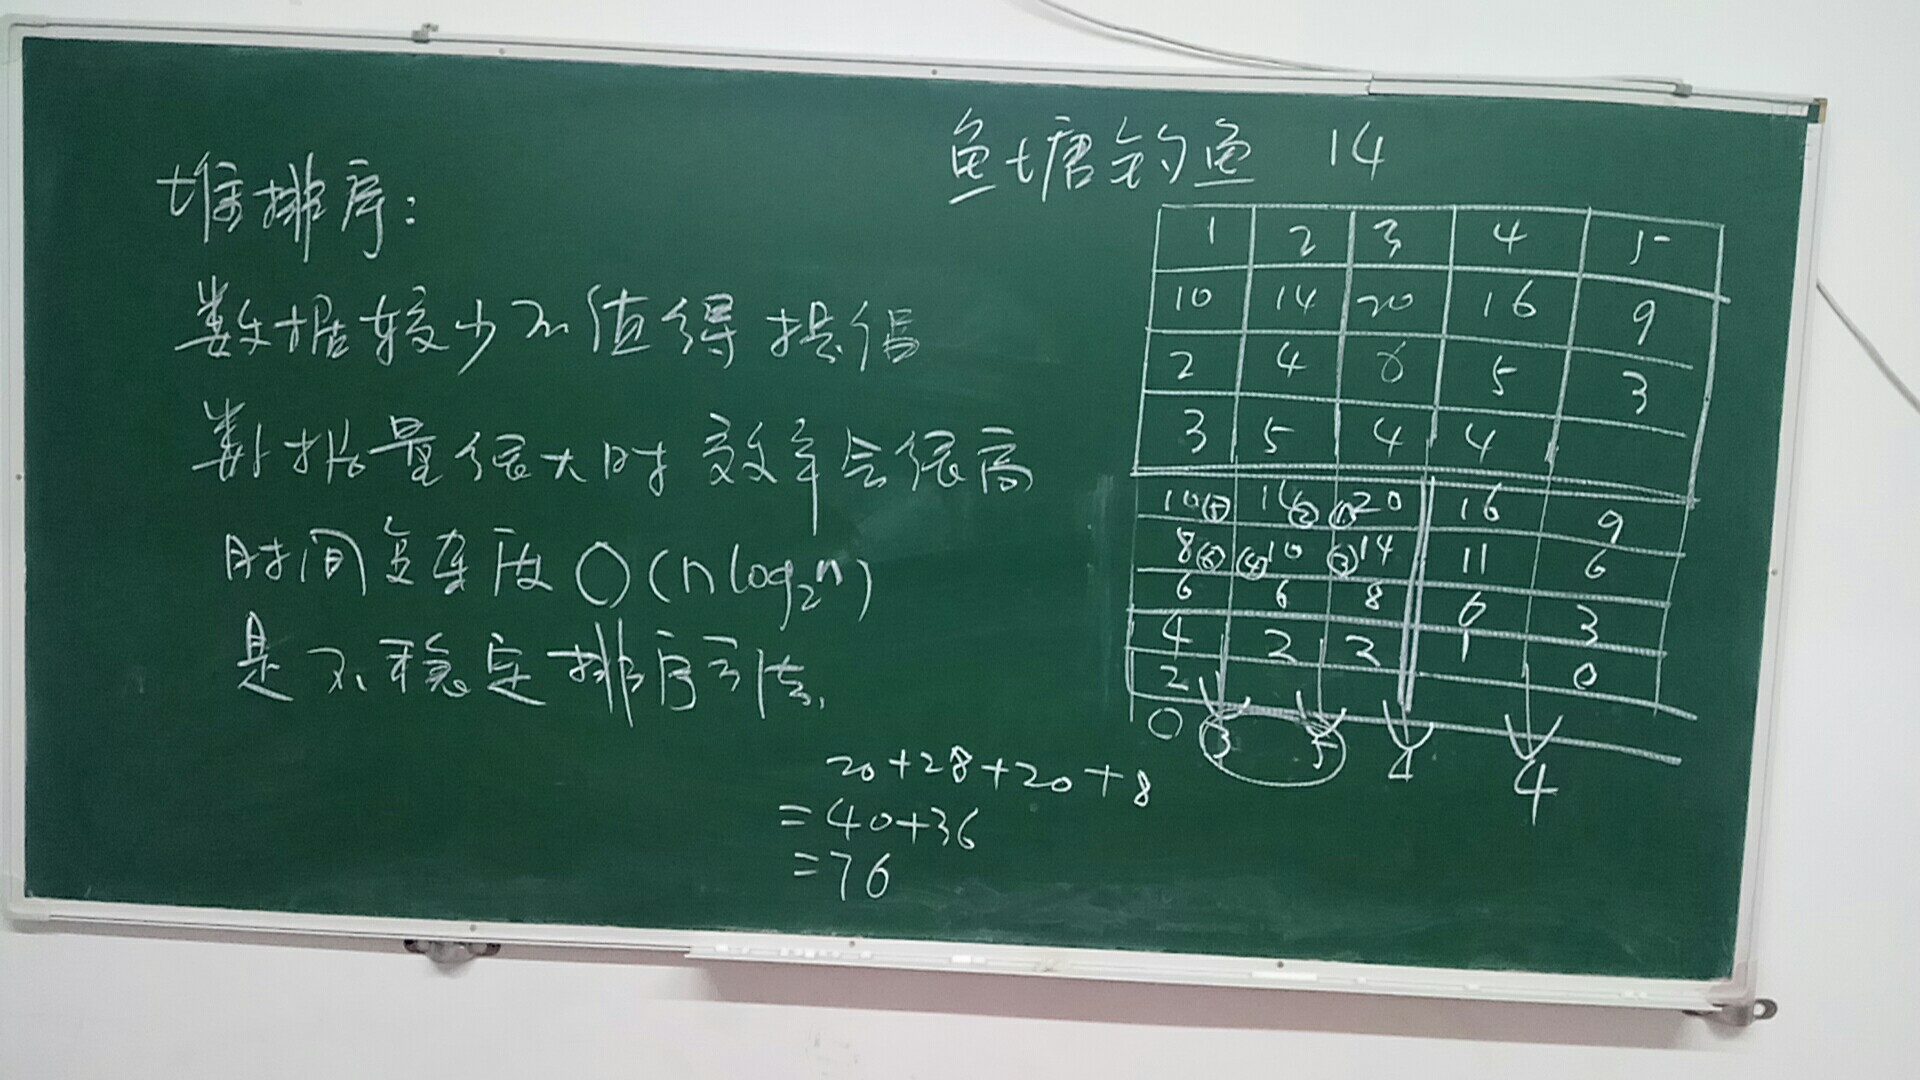 堆排序:
数据较少不值得提倡
数据量很大时效率会很高
时间复杂度 O(nlog₂n)
是不稳定排序方法.
鱼塘钓鱼 14
1 2 3 4 5
10 14 20 16 9
2 4 6 5 3
3 5 4 4
10⑤ 14② ①20 16 9
8⑥ ④10 ③14 11 6
6 6 8 6 3
4 2 2 1 0
2
0 3 5 4 4
20+28+20+8
=40+36
=76